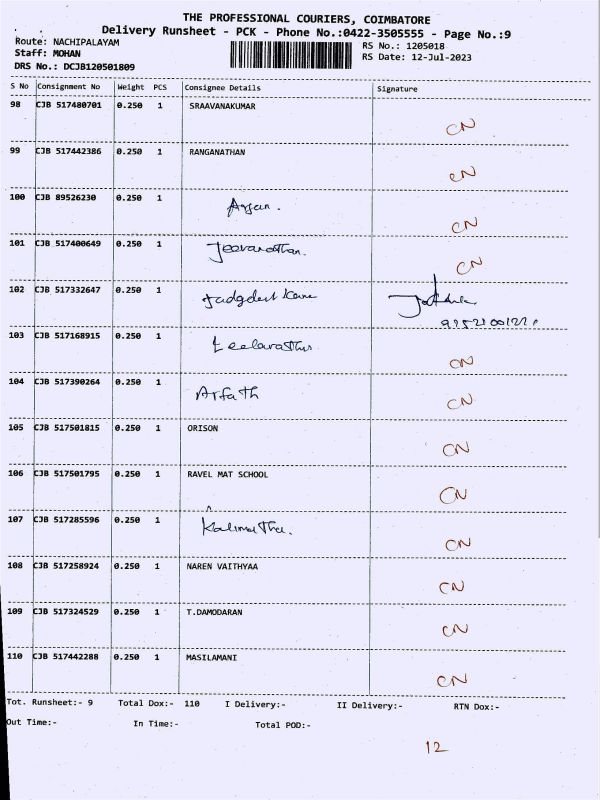 THE PROFESSIONAL COURIERS, COIMBATORE
Delivery Runsheet - PCK - Phone No.:0422-3505555 - Page No.:9
Route: NACHIPALAYAM RS No.: 1205018
Staff: MOHAN RS Date: 12-Jul-2023
DRS No.: DCJB120501809
S No Consignment No Weight PCS Consignee Details Signature
98 CJB 517480701 0.250 1 SRAAVANAKUMAR CN
99 CJB 517442386 0.250 1 RANGANATHAN CN
100 CJB 89526230 0.250 1 CN
101 CJB 517400649 0.250 1 Jeevanathan. CN
102 CJB 517332647 0.250 1
103 CJB 517168915 0.250 1 CN
104 CJB 517390264 0.250 1 Arfath CN
105 CJB 517501815 0.250 1 ORISON CN
106 CJB 517501795 0.250 1 RAVEL MAT SCHOOL CN
107 CJB 517285596 0.250 1 CN
108 CJB 517258924 0.250 1 NAREN VAITHYAA CN
109 CJB 517324529 0.250 1 T.DAMODARAN CN
110 CJB 517442288 0.250 1 MASILAMANI CN
Tot. Runsheet:- 9 Total Dox:- 110 I Delivery:- II Delivery:- RTN Dox:-
Out Time:- In Time:- Total POD:-
12